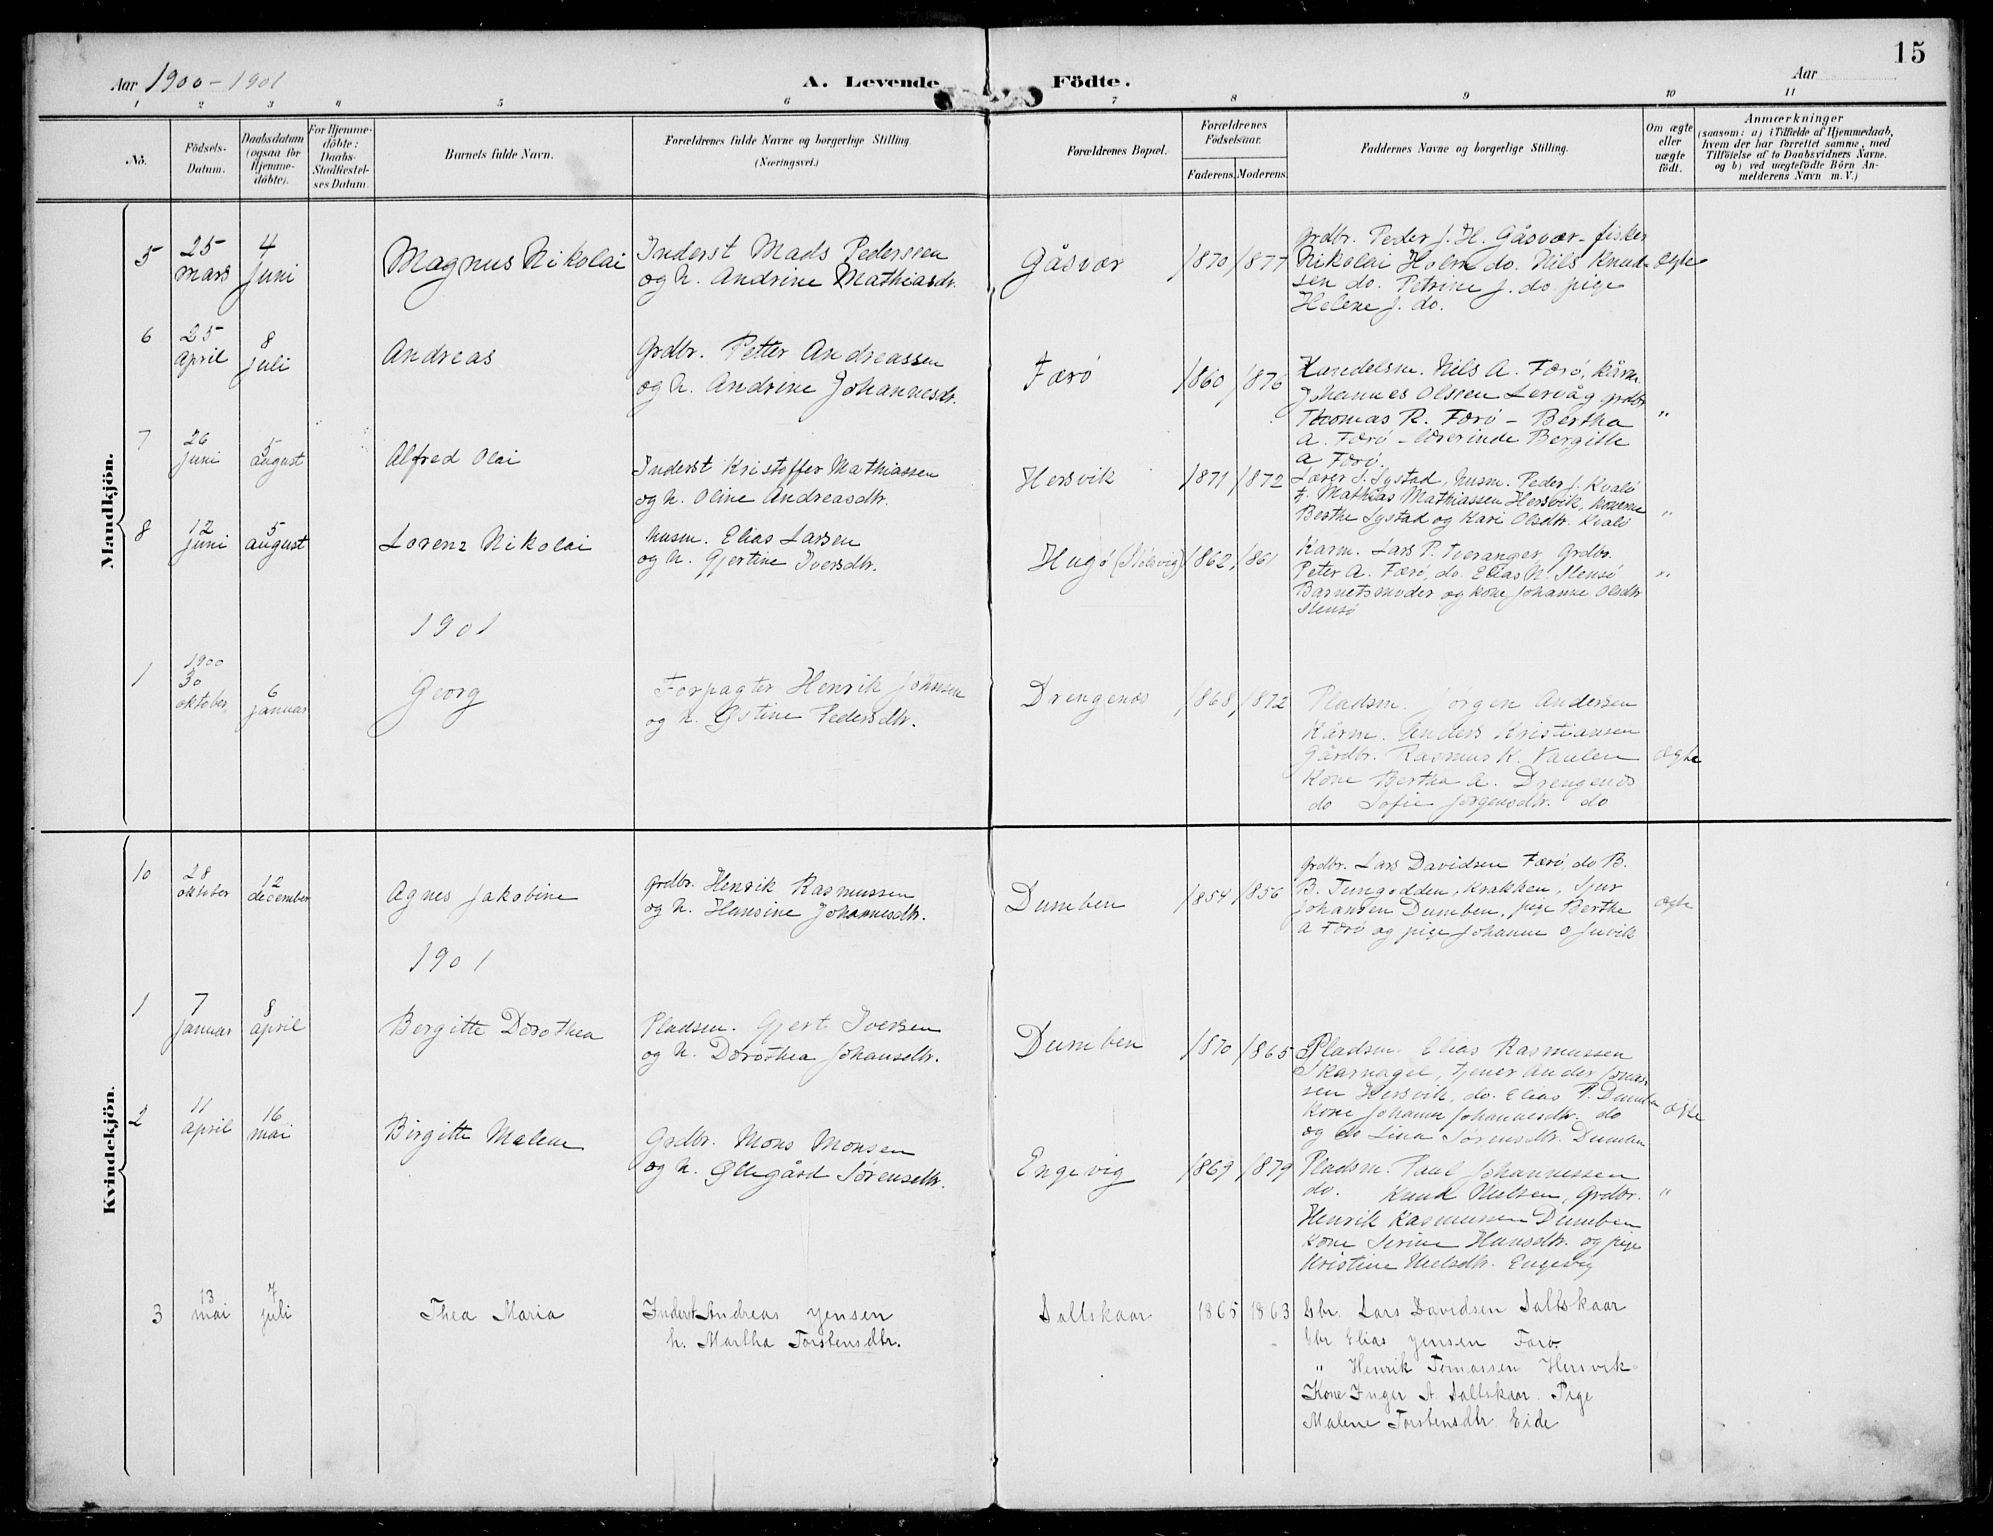 15
Aar 1900-1901
A. Levende Födte.
Aar
1 2 3 4 5 6 7 8 9 10 11
No.
Födsels-Datum.
Daabsdatum (ogsaa for Hjemme-döbte).
For Hjemme-döbte: Daabs-Stadfæstel-ses Datum.
Barnets fulde Navn.
Forældrenes fulde Navne og borgerlige Stilling. (Næringsvei.)
Forældrenes Bopæl.
Forældrenes Födselsaar.
Faderens. Moderens.
Faddernes Navne og borgerlige Stilling.
Om ægte eller uægte födt.
Anmærkninger
(saasom: a) i Tilfælde af Hjemmedaab,
hvem der har forrettet samme, med
Tilföielse af to Daabsvidners Navne.
og b) ved uægtefödte Börn An-
melderens Navn m. V.)
Mandkjön.
5 25 mars 4 juni Magnus Nikolai
Inderst Mads Pederssen
og h. Andrine Mathiasdr.
Gåsvær 1870 1877
Grdbr. Peder J. H. Gåsvær- fisker
Nikolai Holm do. Nils Knud-
sen do. Petrine J. do pige
Helene J. do.
ægte
6 25 april 8 juli Andreas
Grdbr. Petter Andreassen
og h. Andrine Johannesdr.
Færö 1860 1876
Handelsm. Nils A. Færö, kårm.
Johannes Olssen Lervåg grdbr
Thomas R. Færö - Bertha
A. Færö - lærerinde Bergitte
A Færö.
"
7 26 juni 5 august Alfred Olai
Inderst Kristoffer Mathiassen
og h. Oline Andreasdtr.
Hersvik 1871 1872
Lærer S. Systad, husm. Peder J. Kvalö
Mathias Mathiassen Hersvik, konerne
Berthe Systad og Kari Olsdtr. Kvalö
"
8 12 juni 5 august Lorenz Nikolai
husm. Elias Larsen
og h. Gjertine Iversdtr.
Hugö 1862 1861
Kårm. Lars P. Tveranger, Grdbr.
Peter A. Færö, do. Elias N. Stensö
Barnets moder og kone Johanne Olsdtr
Stensö
"
1901
1 1900 30 oktober 6 januar Georg
Forpagter Henrik Johnsen
og h. Østine Pedersdtr.
Drengenes 1868 1872
Pladsm. Jörgen Andersen
Kårm. Anders Kristiansen
Gårdbr. Rasmus K. Vaulen
Kone Bertha A. Drengenes
do Sofie Jörgensdtr. do
ægte
Kvindekjön.
10 28 oktober 12 december Agnes Jakobine
Grdbr. Henrik Rasmussen
og h. Hansine Johannesdtr.
Dumben 1854 1856
Grdbr. Lars Davidsen Færö, do B.
B. Tungodden, Krakken, Sjur
Johansen Dumben, pige Berthe
A Færö og pige Johanne O Juvik
ægte
1901
1 7 januar 8 april Bergitte Dorothea
Pladsm. Gjert Iversen
og h. Dorothea Johansdtr.
Dumben 1870 1865
Pladsm. Elias Rasmussen
Skarhaget, tjener Ander Jonas-
sen Hersvik, do. Elias P. Dumben
Kone Johanne Johannesdtr. do
og do Lina Sörensdtr. Dumben
ægte
2 11 april 16 mai Birgitte Malene
Grdbr. Mons Monsen
og h. Øllegård Sörensdtr.
Engevig 1869 1879
Pladsm. Paul Johannessen
do. Knud Nielsen, Grdbr.
Henrik Rasmussen Dumben
Kone Serine Hansdtr. og pige
Kristine Nielsdtr. Engevig
"
3 13 mai 7 juli Thea Maria
Inderst Andreas Jensen
h. Martha Torstensdtr.
Saltskaar 1865 1863
Gbr. Lars Davidsen Saltskaar
Gbr Elias Jensen Farö
" Henrik Tomassen Hersvik
Kone Inger A. Saltskaar. Pige
Malene Torstensdtr. Eide